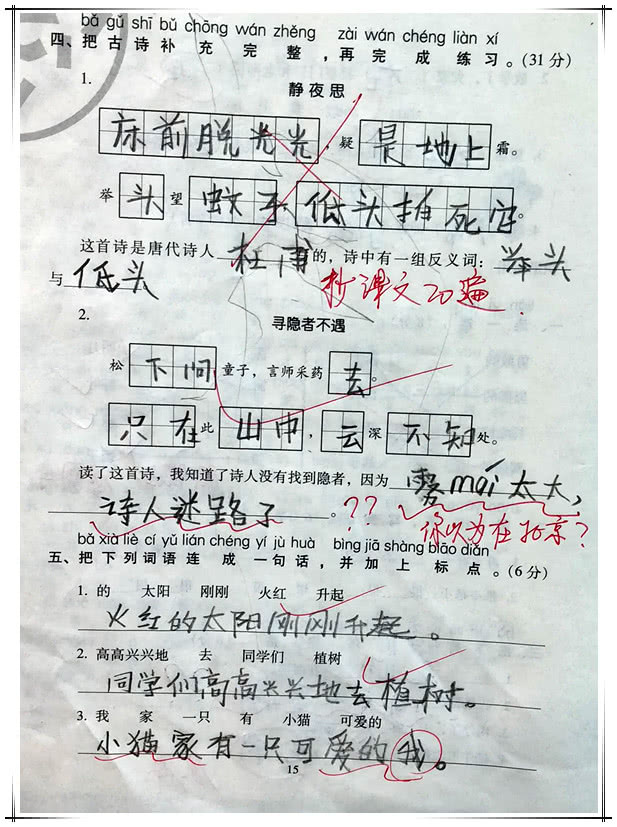 bǎ gǔ shī bǔ chōng wán zhěng zài wán chéng liàn xí
四、把古诗补充完整,再完成练习。(31分)
1.
静夜思
床前脱光光,疑是地上霜。
举头望蚊子低头拍死它。
这首诗是唐代诗人杜甫的,诗中有一组反义词:举头
与低头
抄课文20遍.
2.
寻隐者不遇
松下问童子,言师采药去。
只在此山中,云深不知处。
读了这首诗,我知道了诗人没有找到隐者,因为雾mái太大,
诗人迷路了。??
你以为在北京?
bǎ xià liè cí yǔ lián chéng yí jù huà bìng jiā shàng biāo diǎn
五、把下列词语连成一句话,并加上标点。(6分)
1. 的 太阳 刚刚 火红 升起
火红的太阳刚刚升起。
2. 高高兴兴地 去 同学们 植树
同学们高高兴兴地去植树。
3. 我 家 一只 有 小猫 可爱的
小猫家有一只可爱的我。
15